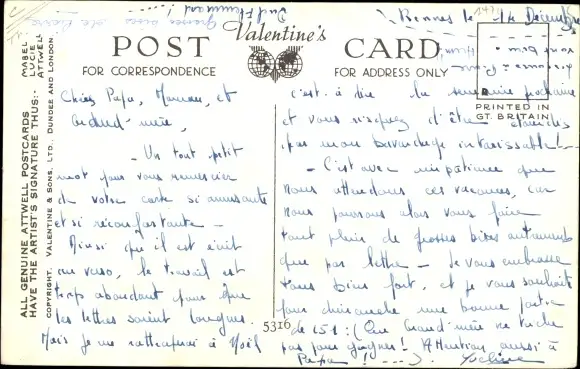 Rennes le 14 Décembre
Valentine's
POST CARD
FOR CORRESPONDENCE
FOR ADDRESS ONLY
PRINTED IN
GT. BRITAIN
MABEL
LUCIE
ATTWELL
ALL GENUINE ATTWELL POSTCARDS
HAVE THE ARTIST'S SIGNATURE THUS:-
COPYRIGHT, VALENTINE & SONS, LTD., DUNDEE AND LONDON.
5316
Chers Papa, Maman, et
Grand'-mère,
- Un tout petit
mot pour vous remercier
de votre carte si amusante
et si réconfortante -
Ainsi qu'il est écrit
au verso, le travail est
trop abondant pour que
les lettres soient longues.
Mais je me rattraperai à Noël
c'est-à-dire la semaine prochaine
et vous risquez d'être
par mon bavardage intarissable!
- C'est avec impatience que
nous attendons ces vacances, car
nous pourrons alors vous faire
tout plein de grosses bises autrement
que par lettre - Je vous embrasse
tous bien fort, et je vous souhaite
pour dimanche une bonne partie
de 151 : (Que Grand'-mère ne triche
pas pour gagner! Attention aussi à
Papa! ---) Yveline